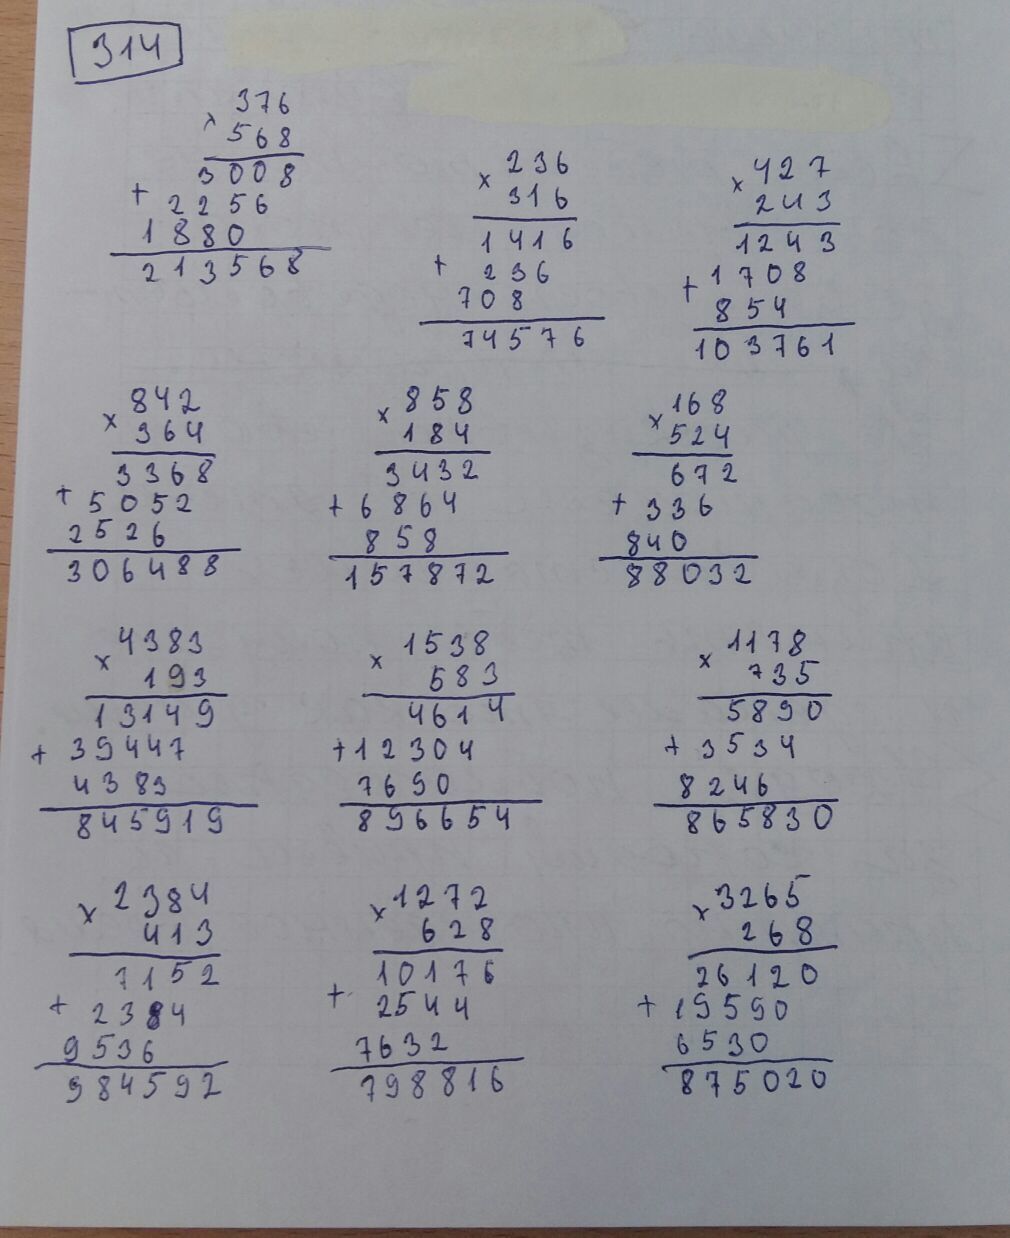 314
376
× 568
3008
+ 2256
1880
213568
236
× 316
1416
+ 236
708
74576
427
× 243
1243
+ 1708
854
103761
842
× 364
3368
+ 5052
2526
306488
858
× 184
3432
+ 6864
858
157872
168
× 524
672
+ 336
840
88032
4383
× 193
13149
+ 39447
4383
845919
1538
× 583
4614
+ 12304
7690
896654
1178
× 735
5890
+ 3534
8246
865830
2384
× 413
7152
+ 2384
9536
984592
1272
× 628
10176
+ 2544
7632
798816
3265
× 268
26120
+ 19590
6530
875020